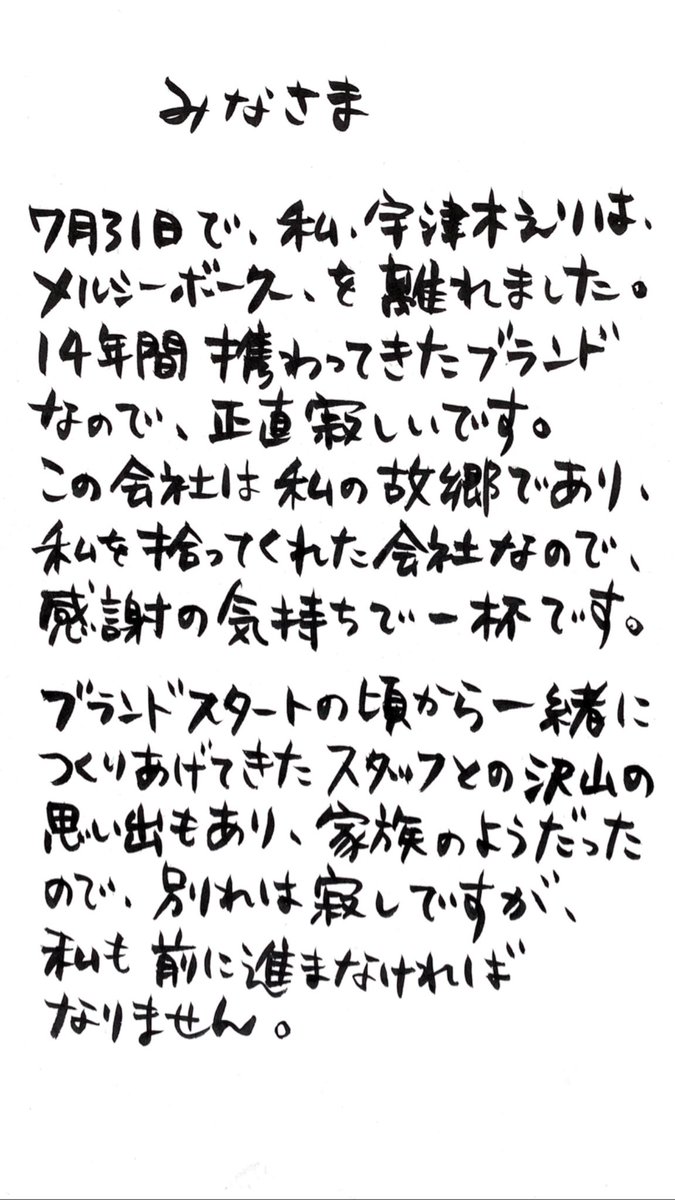 みなさま
7月31日で、私、宇津木えりは、
メルシーボークー、を離れました。
14年間携わってきたブランド
なので、正直寂しいです。
この会社は私の故郷であり、
私を拾ってくれた会社なので、
感謝の気持ちで一杯です。
ブランドスタートの頃から一緒に
つくりあげてきたスタッフとの沢山の
思い出もあり、家族のようだった
ので、別れは寂しですが、
私も前に進まなければ
なりません。